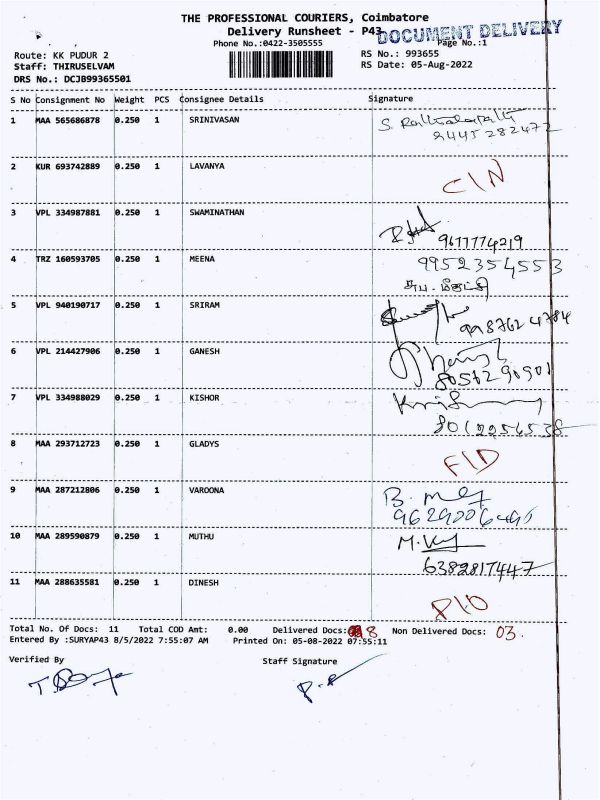 THE PROFESSIONAL COURIERS, Coimbatore
Delivery Runsheet - P43
DOCUMENT DELIVERY
Phone No.:0422-3505555
Page No.:1
Route: KK PUDUR 2
RS No.: 993655
Staff: THIRUSELVAM
RS Date: 05-Aug-2022
DRS No.: DCJB99365501
S No Consignment No Weight PCS Consignee Details Signature
1 MAA 565686878 0.250 1 SRINIVASAN
9445282472
2 KUR 693742889 0.250 1 LAVANYA
C/N
3 VPL 334987881 0.250 1 SWAMINATHAN
9677774219
4 TRZ 160593705 0.250 1 MEENA 9952354553
5 VPL 940190717 0.250 1 SRIRAM
9987624784
6 VPL 214427906 0.250 1 GANESH
8056290901
7 VPL 334988029 0.250 1 KISHOR
8012256538
8 MAA 293712723 0.250 1 GLADYS
F/D
9 MAA 287212806 0.250 1 VAROONA
10 MAA 289590879 0.250 1 MUTHU
6382817447
11 MAA 288635581 0.250 1 DINESH
Total No. Of Docs: 11 Total COD Amt: 0.00 Delivered Docs: 8 Non Delivered Docs: 03.
Entered By :SURYAP43 8/5/2022 7:55:07 AM Printed On: 05-08-2022 07:55:11
Verified By Staff Signature